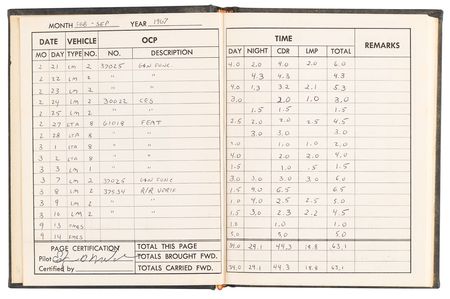 MONTH FEB - SEP YEAR 1967
DATE VEHICLE OCP
MO DAY TYPE NO. NO. DESCRIPTION
2 21 LM 2 37025 GEN FUNC.
2 22 LM 2 " "
2 23 LM 2 " "
2 24 LM 2 30022 CSS
2 25 LM 2 " "
2 27 LTA 8 61018 FEAT
2 28 LTA 8 " "
3 1 LTA 8 " "
3 2 LTA 8 " "
3 3 LM 1
3 7 LM 2 37025 GEN FUNC
3 8 LM 2 37534
3 9 LM 2 " "
3 10 LM 2 " "
9 13
9 14
PAGE CERTIFICATION
Pilot
Certified by
TOTAL THIS PAGE
TOTALS BROUGHT FWD.
TOTALS CARRIED FWD.
TIME REMARKS
DAY NIGHT CDR LMP TOTAL
4.0 2.0 4.0 2.0 6.0
4.3 4.3 4.3
4.0 1.3 3.2 2.1 5.3
3.0 2.0 1.0 3.0
1.5 1.5 1.5
2.5 2.0 2.0 2.5 4.5
3.0 3.0 3.0
1.0 1.0 2.0
4.0 2.0 2.0 4.0
1.5 1.0 .5 1.5
3.0 3.0 3.0 3.0 6.0
6.5 6.5
1.0 4.0 2.5 2.5 5.0
1.5 3.0 2.3 2.2 4.5
1.0 1.0
5.0 5.0
34.0 29.1 44.3 18.8 63.1
34.0 29.1 44.3 18.8 63.1